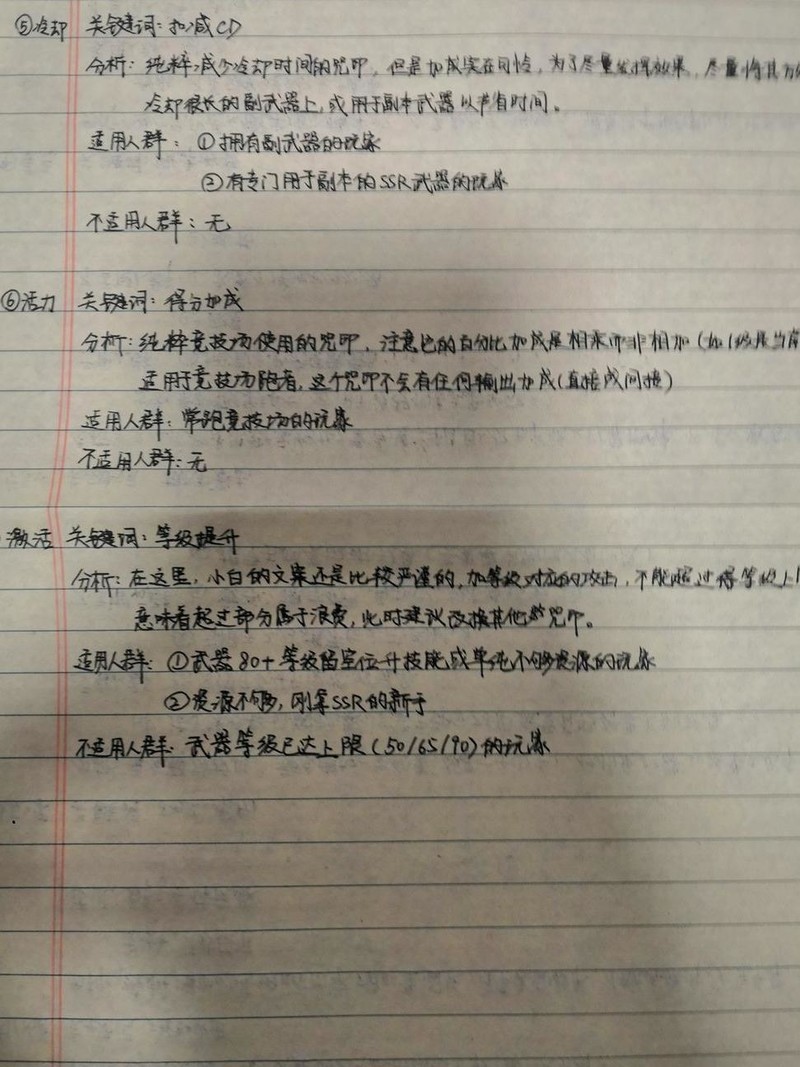 ⑤冷却 关键词:扣减CD
分析:纯粹减少冷却时间的咒印,但是加成实在可怜,为了尽量发挥效果,尽量将其
冷却很长的副武器上,或用于副本武器以节省时间。
适用人群:①拥有副武器的玩家
②有专门用于副本的SSR武器的玩家
不适用人群:无
⑥活力 关键词:得分加成
分析:纯粹竞技场使用的咒印,注意它的百分比加成是相乘而非相加(如
适用于竞技场跑者,这个咒印不会有任何输出加成(直接或间接)
适用人群:常跑竞技场的玩家
不适用人群:无
激活 关键词:等级提升
分析:在这里,小白的文案还是比较严谨的,加等级对应的攻击,不能超过得等级上
意味着超过部分属于浪费,此时建议改换其他咒印。
适用人群:①武器80+等级留空位升技能或单纯不够资源的玩家
②资源不够,刚拿SSR的新手
不适用人群:武器等级已达上限(50/65/90)的玩家